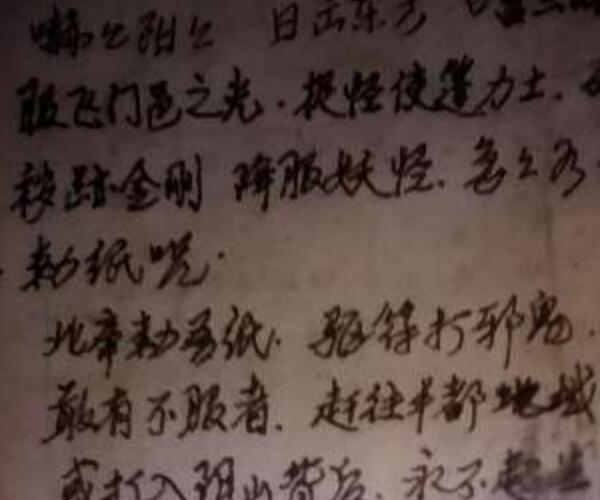 嚇々阳々 日出东方
服飞门邑之光.捉怪使筆力士.
秽跡金刚 降服妖怪.急々
勅纸咒.
北帝勅吾纸.驱𨦟打邪鬼.
敢有不服者.赶往丰都地域
或打入阴山背后.永不超生